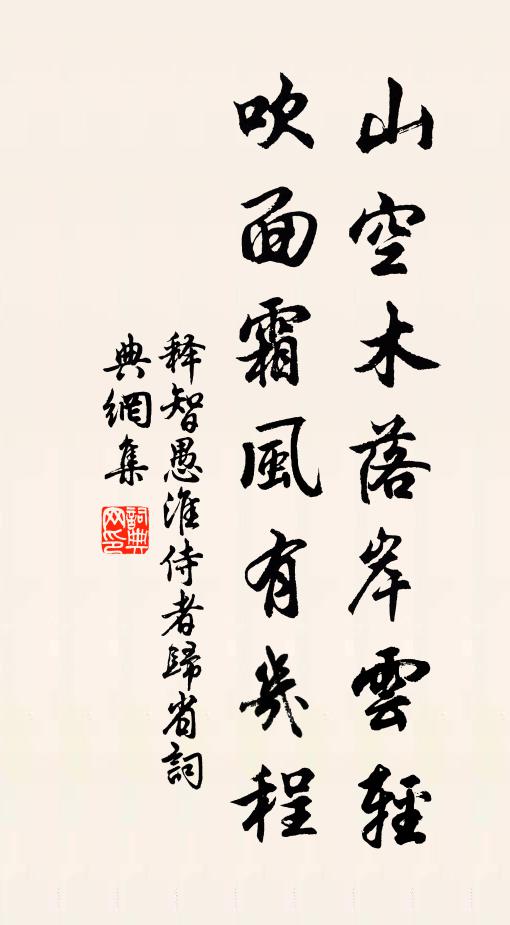 山空木落岸雲輕
吹面霜風有幾程
释智愚淮侍者歸省詞
典網集
詞典網印